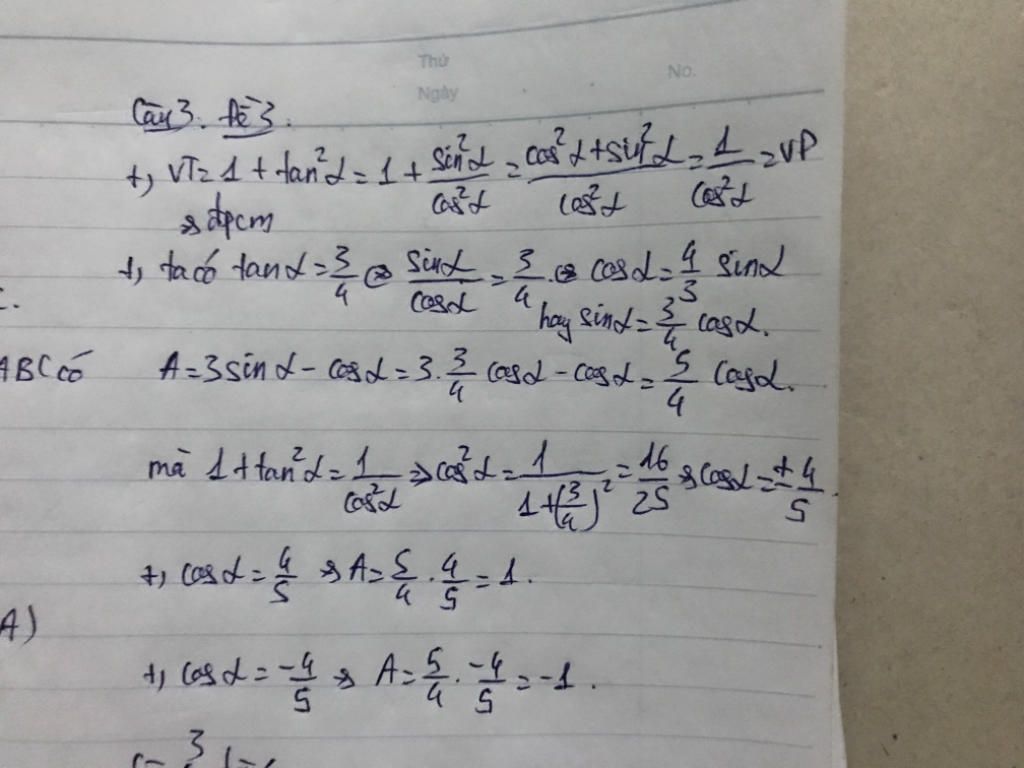 Thứ
No.
Ngày
Câu 3. Đề 3.
+, VT = 1 + tan²α = 1 + sin²α/cos²α = (cos²α + sin²α)/cos²α = 1/cos²α = VP
⇒ đpcm
+, ta có tanα = 3/4 ⇔ sinα/cosα = 3/4 ⇔ cosα = 4/3 sinα
hay sinα = 3/4 cosα.
ABC có
A = 3sinα - cosα = 3.3/4 cosα - cosα = 5/4 cosα.
mà 1 + tan²α = 1/cos²α ⇒ cos²α = 1/(1+(3/4)²) = 16/25 ⇒ cosα = ±4/5.
+, cosα = 4/5 ⇒ A = 5/4 . 4/5 = 1.
A)
+, cosα = -4/5 ⇒ A = 5/4 . -4/5 = -1.